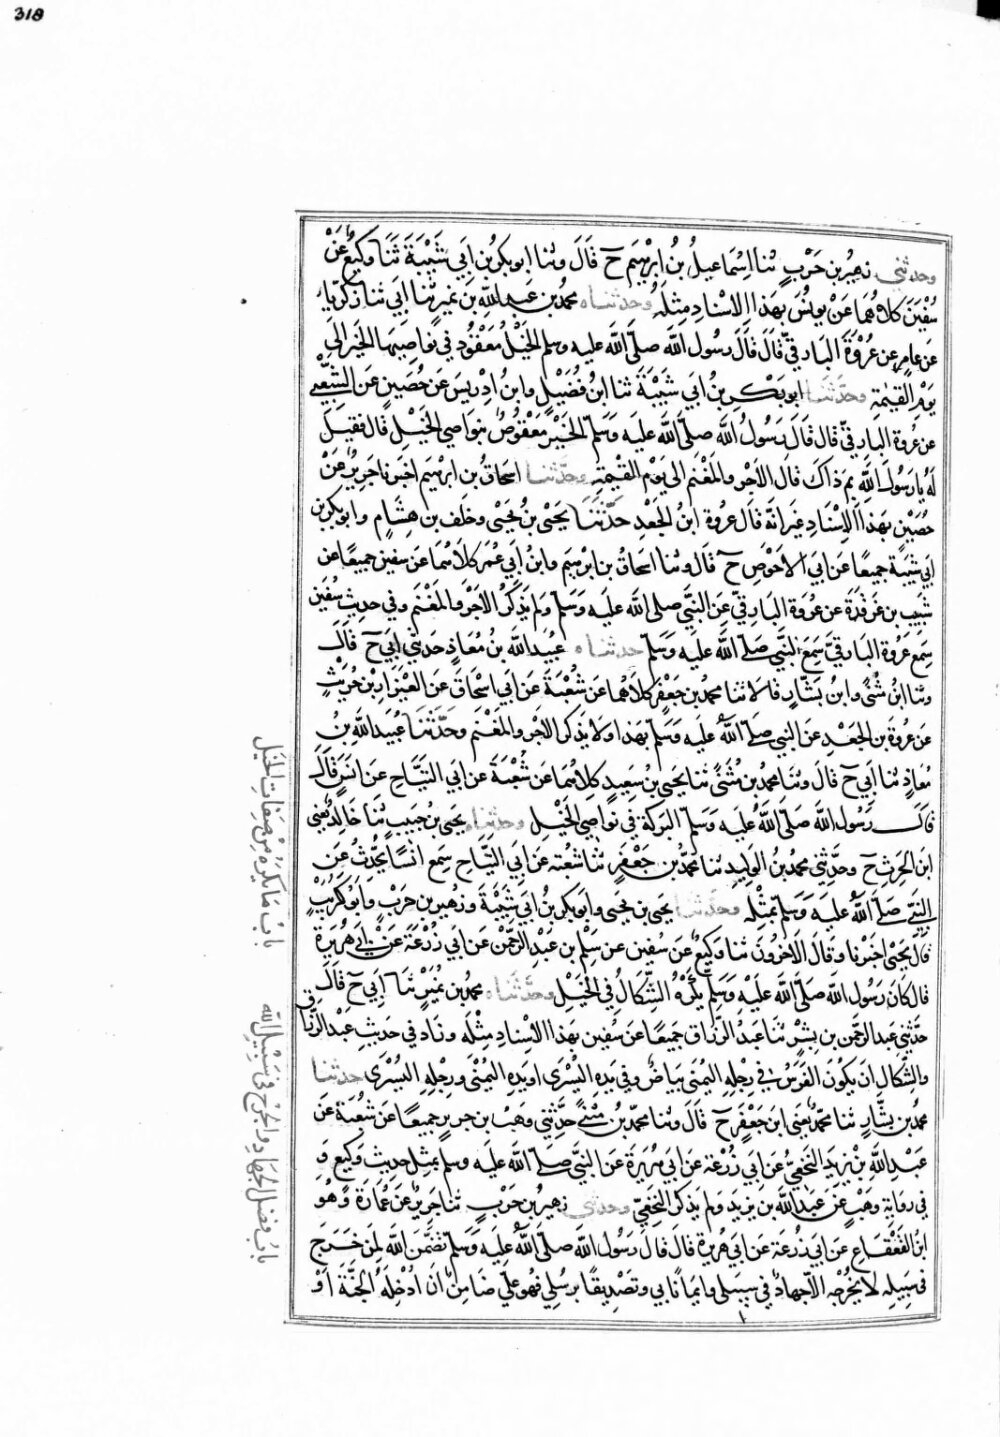 318
وحدثني زهير بن حرب ثنا اسماعيل بن ابرهيم ح قال وثنا ابو بكر بن ابي شيبة ثنا وكيع عن
سفين كلاهما عن يونس بهذا الاسناد مثله وحدثناه محمد بن عبد الله بن نمير ثنا ابي ثنا زكريا
عن عامر عن عروة البارقي قال قال رسول الله صلى الله عليه وسلم الخيل معقود في نواصيها الخير الى
يوم القيمة وحدثنا ابو بكر بن ابي شيبة ثنا ابن فضيل وابن ادريس عن حصين عن الشعبي
عن عروة البارقي قال قال رسول الله صلى الله عليه وسلم الخير معقوص بنواصي الخيل قال فقيل
له يا رسول الله بم ذاك قال الاجر والمغنم الى يوم القيمة وحدثنا اسحاق بن ابرهيم اخبرنا جرير عن
حصين بهذا الاسناد غير انه قال عروة ابن الجعد حدثنا يحيى بن يحيى وخلف بن هشام وابو بكر بن
ابي شيبة جميعا عن ابي الاحوص ح قال وثنا اسحاق بن ابرهيم وابن ابي عمر كلاهما عن سفين جميعا عن
شبيب بن غرقدة عن عروة البارقي عن النبي صلى الله عليه وسلم ولم يذكر الاجر والمغنم وفي حديث سفين
سمع عروة البارقي سمع النبي صلى الله عليه وسلم حدثناه عبيد الله بن معاذ حدثني ابي ح قال
وثنا ابن مثنى وابن بشار قالا ثنا محمد بن جعفر كلاهما عن شعبة عن ابي اسحاق عن العيزار بن حريث
عن عروة بن الجعد عن النبي صلى الله عليه وسلم بهذا ولا يذكر الاجر والمغنم وحدثنا عبيد الله بن
معاذ ثنا ابي ح قال وثنا محمد بن مثنى ثنا يحيى بن سعيد كلاهما عن شعبة عن ابي التياح عن انس قال
قال رسول الله صلى الله عليه وسلم البركة في نواصي الخيل وحدثناه يحيى بن حبيب ثنا خالد يعني
ابن الحرث ح وحدثني محمد بن الوليد ثنا محمد بن جعفر ثنا شعبة عن ابي التياح سمع انسا يحدث عن
النبي صلى الله عليه وسلم بمثله وحدثنا يحيى بن يحيى وابو بكر بن ابي شيبة وزهير بن حرب وابو كريب
قال يحيى اخبرنا وقال الاخرون ثنا وكيع عن سفين عن سلم بن عبد الرحمن عن ابي زرعة عن ابي هريرة
قال كان رسول الله صلى الله عليه وسلم يكره الشكال في الخيل وحدثناه محمد بن نمير ثنا ابي ح قال
حدثني عبد الرحمن بن بشر ثنا عبد الرزاق جميعا عن سفين بهذا الاسناد مثله وزاد في حديث عبد الرزاق
والشكال ان يكون الفرس في رجله اليمنى بياض وفي يده اليسرى او يده اليمنى ورجله اليسرى حدثنا
محمد بن بشار ثنا محمد يعني ابن جعفر ح قال وثنا محمد بن مثنى حدثني وهب بن جرير جميعا عن شعبة عن
عبد الله بن يزيد النخعي عن ابي زرعة عن ابي هريرة عن النبي صلى الله عليه وسلم بمثل حديث وكيع و
في رواية وهب عن عبد الله بن يزيد ولم يذكر النخعي وحدثني زهير بن حرب ثنا جرير عن عمارة وهو
ابن القعقاع عن ابي زرعة عن ابي هريرة قال قال رسول الله صلى الله عليه وسلم تضمن الله لمن خرج
في سبيله لا يخرجه الا جهاد في سبيلي وايمانا بي وتصديقا برسلي فهو علي ضامن ان ادخله الجنة او
باب ما يكره من صفات الخيل
باب فضل الجهاد والخروج في سبيل الله